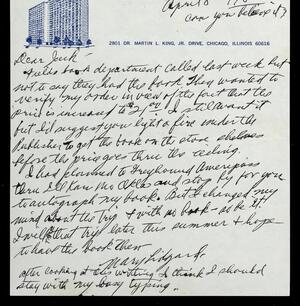 April 8
Can you believe it?
2801 DR. MARTIN L. KING, JR. DRIVE, CHICAGO, ILLINOIS 60616
Dear Dick -
Fields book department called last week but
not to say they had the book. They wanted to
verify my order in view of the fact that the
price is increased to $21.00! I still want it
but I'd suggest you light a fire under the
Publisher to get the book on the store shelves
before the price goes thru the ceiling.
I had planned to Greyhound Ameripass
thru and stop by for you
to autograph my book. But I changed my
mind about the trip & with no book - so be it.
I will that trip late this summer & hope
to have the book then.
Mary
after looking at this writing I think I should
stay with my lousy typing.